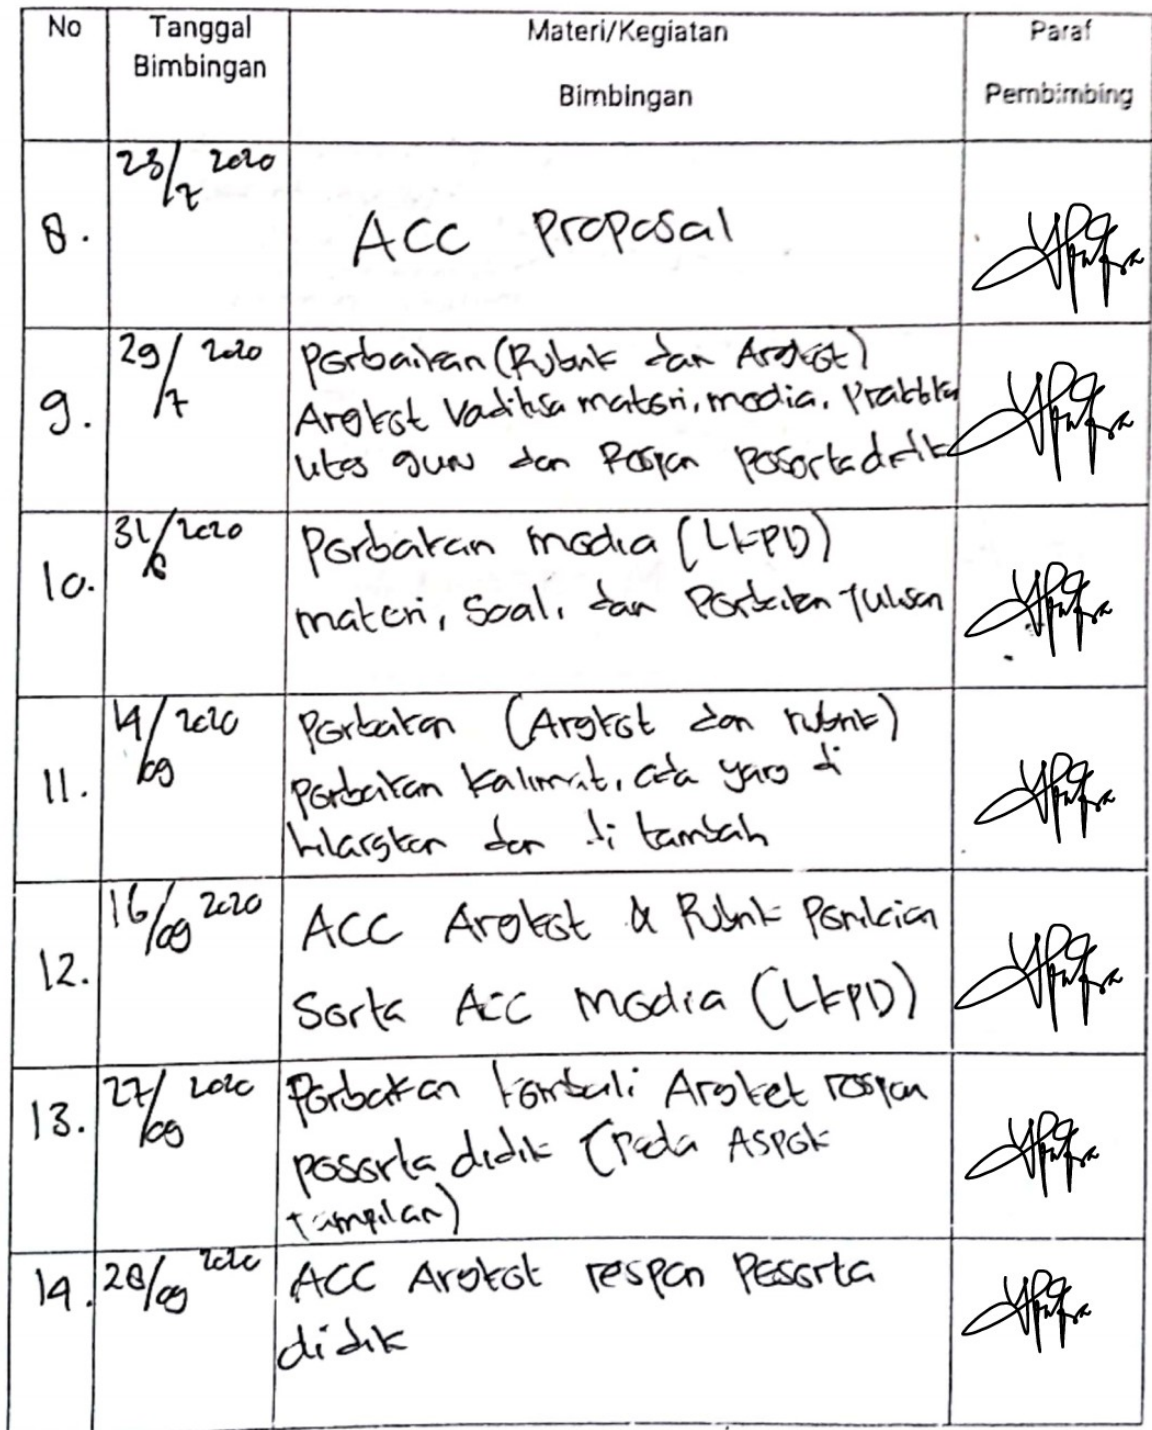 No
Tanggal
Bimbingan
Materi/Kegiatan
Bimbingan
Paraf
Pembimbing
8.
23/7 2020
ACC Proposal
9.
29/7 2020
Perbaikan (Rubrik dan Angket)
Angket Validasi materi, media, Praktika
litas guru dan Respon peserta didik
10.
31/8 2020
Perbaikan media (LKPD)
materi, Soal, dan Perbaikan Tulisan
11.
14/09 2020
Perbaikan (Angket dan rubrik)
perbaikan kalimat, ada yang di
hilangkan dan di tambah
12.
16/09 2020
ACC Angket & Rubrik Penilaian
Serta ACC Media (LKPD)
13.
27/09 2020
Perbaikan kembali Angket respon
peserta didik (Pada Aspek
tampilan)
14.
28/09 2020
ACC Angket respon Peserta
didik